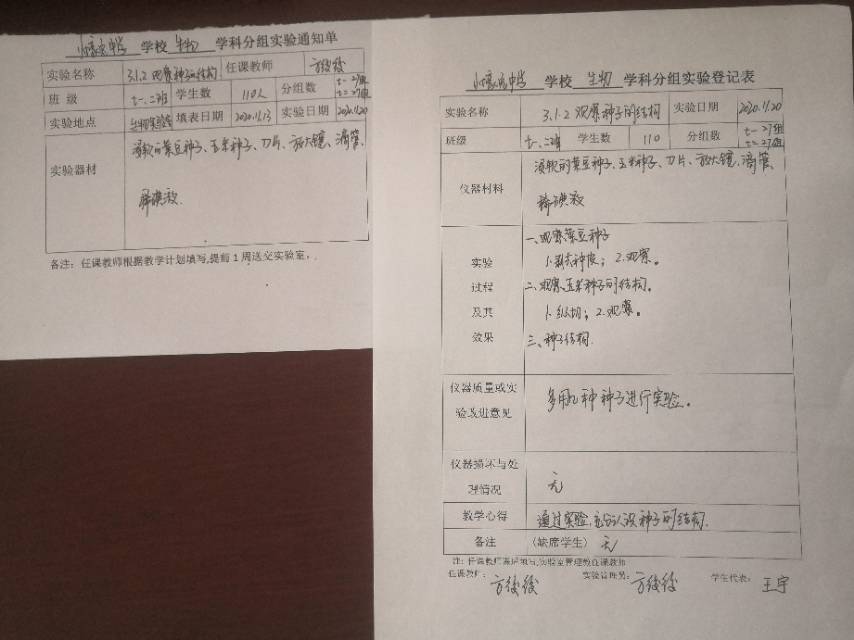 学校 生物 学科分组实验通知单
实验名称 3.1.2 观察种子的结构 任课教师 方绫绫
班 级 七一、二班 学生数 110人 分组数 七一 27组
七二 27组
实验地点 生物实验室 填表日期 2020.11.13 实验日期 2020.11.20
实验器材 浸软的菜豆种子、玉米种子、刀片、放大镜、滴管、
稀碘液.
备注：任课教师根据教学计划填写,提前1周送交实验室，
学校 生物 学科分组实验登记表
实验名称 3.1.2 观察种子的结构 实验日期 2020.11.20
班级 七一、二班 学生数 110 分组数 七一 27组
七二 27组
仪器材料 浸软的菜豆种子、玉米种子、刀片、放大镜、滴管、
稀碘液
实验
过程
及其
效果
一、观察菜豆种子
1.剥去种皮；2.观察。
二、观察玉米种子的结构。
1.纵切；2.观察。
三、种子结构.
仪器质量或实
验改进意见
多用几种种子进行实验。
仪器损坏与处
理情况
无
教学心得 通过实验,充分认识种子的结构.
备注 （缺席学生） 无
注：任课教师课后填写,实验室管理教任课教师
任课教师： 方绫绫 实验管理员： 方绫绫 学生代表： 王宇